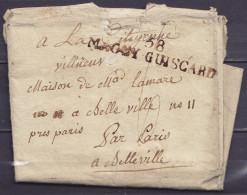 a La Citoyenne
58
MAGNY GUISCARD
villneuve
Maison de Mad lamare
a belle ville no 11
pres paris
Par Paris
a Belleville